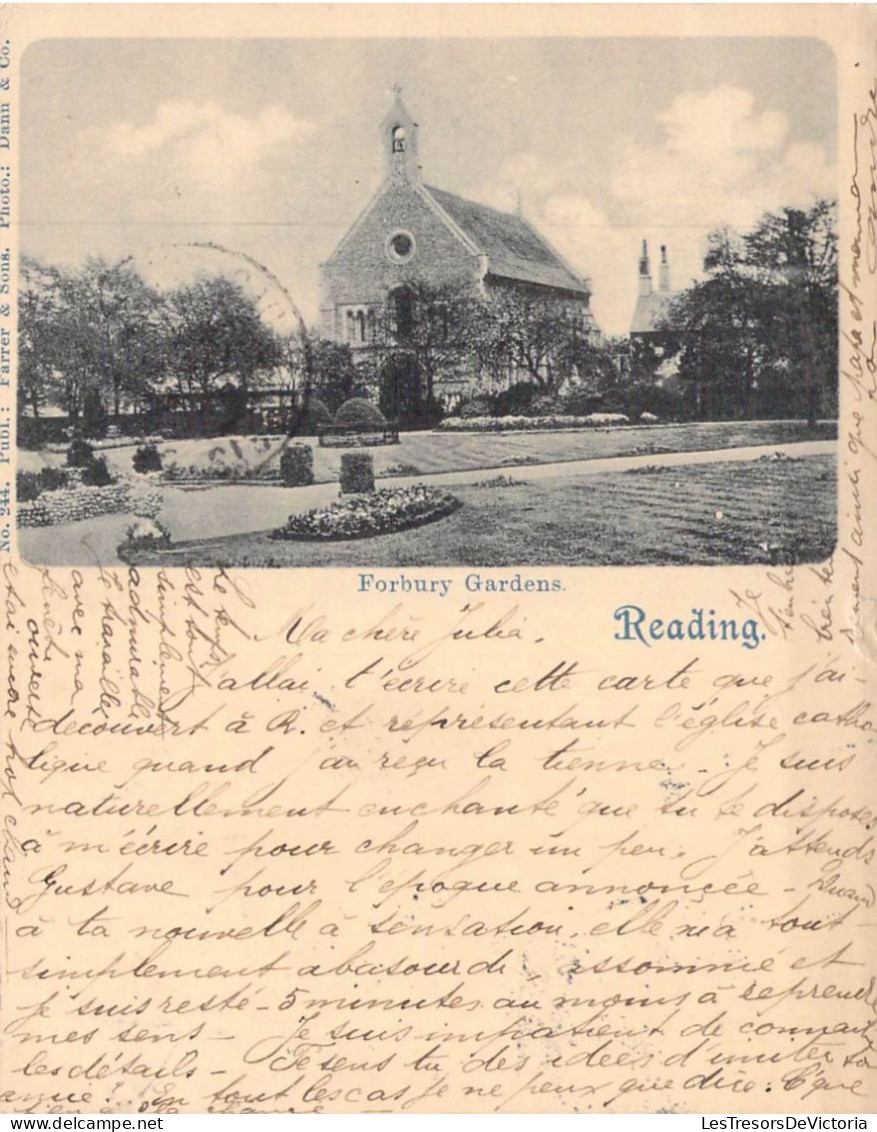 No. 244. Publ.: Farrer & Sons. Photo.: Dann & Co.
Forbury Gardens.
Reading.
Ma chère Julia,
J'allai t'écrire cette carte que j'ai
découvert à R. et représentant l'église catho-
lique quand j'ai reçu la tienne. Je suis
naturellement enchanté que tu te disposes
à m'écrire pour changer un peu. J'attends
Gustave pour l'époque annoncée - Quand
à ta nouvelle à sensation, elle m'a tout
simplement abasourdi, assommé et
je suis resté - 5 minutes au moins à reprendre
mes sens - Je suis impatient de connaitre
les détails - Te sens tu des idées d'imiter ta
amie? En tout les cas je ne peux que dire: C'que
Le temps
est tout
simplement
admirable
Je travaille
avec ma
fenêtre
ouverte
et ai encore trop chaud
Je
ainsi que papa et maman
André